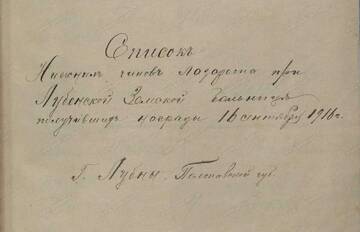 Списокъ
Нижнимъ чиновъ Лазарета при
Лубенской Земской больницѣ
получившихъ награды 16 сентября 1916 г.
Г. Лубны. Полтавской губ.